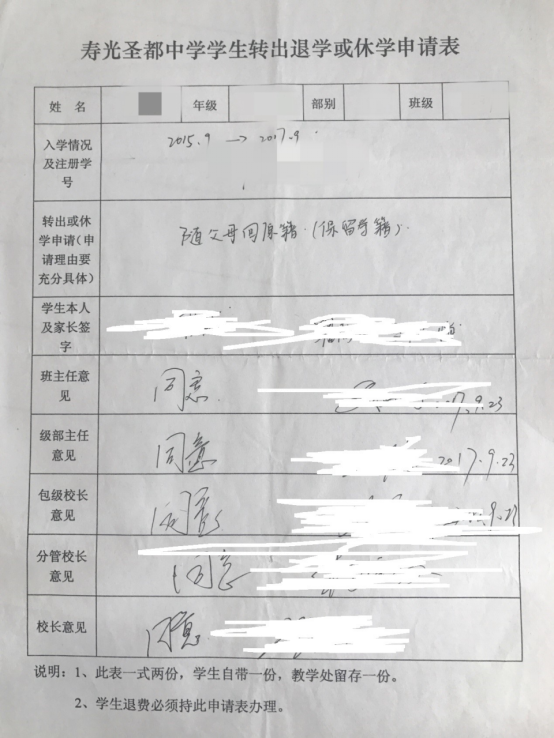 寿光圣都中学学生转出退学或休学申请表
姓 名 年级 部别 班级
入学情况
及注册学
号
2015.9 → 2017.9.
转出或休
学申请(申
请理由要
充分具体)
随父母回原籍.(保留学籍).
学生本人
及家长签
字
班主任意
见
同意 17.9.23
级部主任
意见
同意 2017.9.23
包级校长
意见
同意
分管校长
意见
同意
校长意见
同意
说明:1、此表一式两份,学生自带一份,教学处留存一份。
2、学生退费必须持此申请表办理。